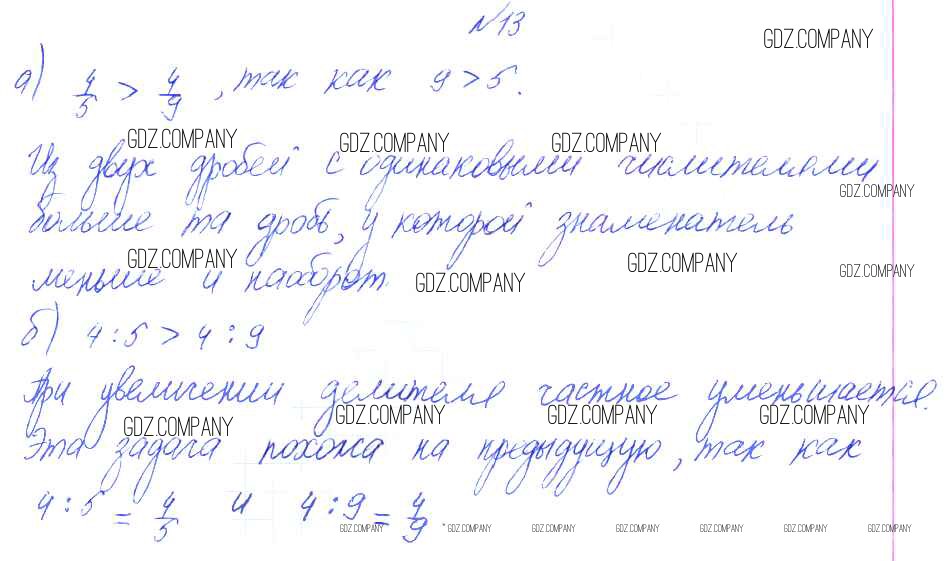 №13
GDZ.COMPANY
а) 4/5 > 4/9, так как 9 > 5.
GDZ.COMPANY GDZ.COMPANY GDZ.COMPANY
Из двух дробей с одинаковыми числителями
GDZ.COMPANY
больше та дробь, у которой знаменатель
GDZ.COMPANY GDZ.COMPANY GDZ.COMPANY
меньше и наоборот.
GDZ.COMPANY
б) 4 : 5 > 4 : 9
При увеличении делителя частное уменьшается.
GDZ.COMPANY GDZ.COMPANY GDZ.COMPANY GDZ.COMPANY
Эта задача похожа на предыдущую, так как
4 : 5 = 4/5 и 4 : 9 = 4/9.
GDZ.COMPANY GDZ.COMPANY GDZ.COMPANY GDZ.COMPANY GDZ.COMPANY GDZ.COMPANY GDZ.COMPANY